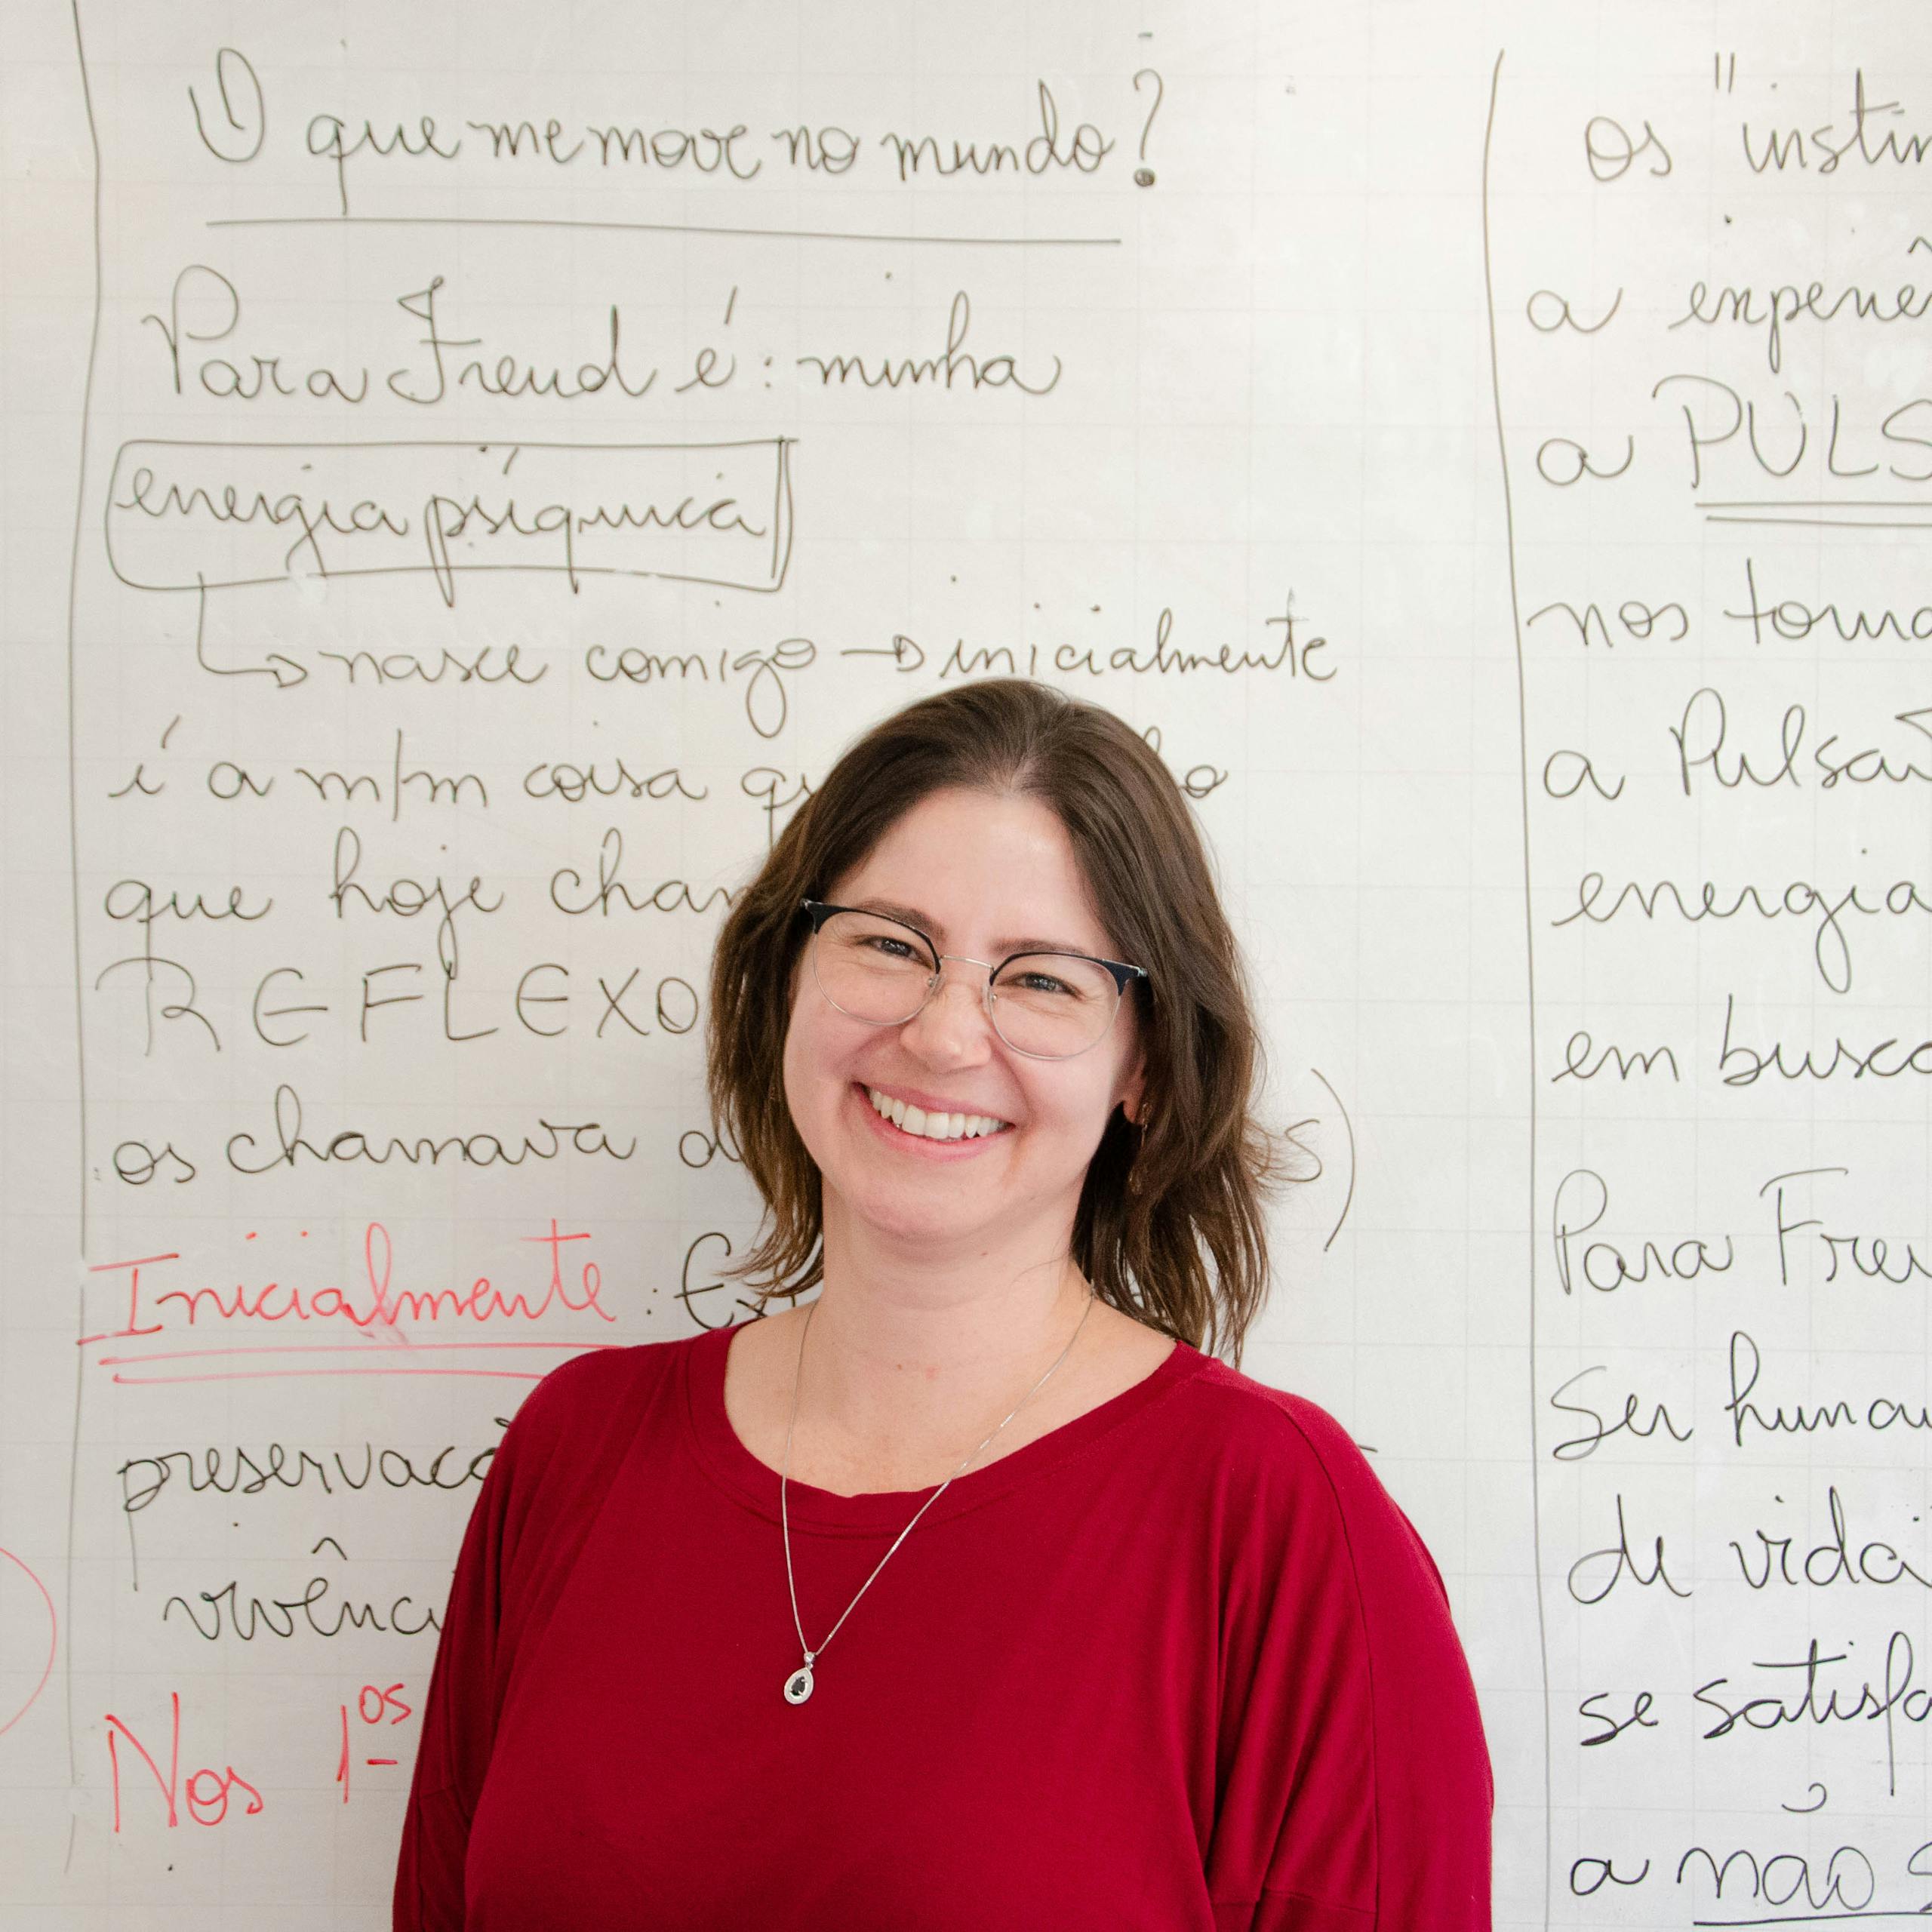 O que me move no mundo?
Para Freud é: minha
energia psíquica
nasce comigo → inicialmente
é a m/m coisa
que hoje
REFLEXO
os chamava
Inicialmente:
vivênci
Nos 1os
os "instin
a
a PULS
nos torna
a Pulsão
energia
em busca
Para Freu
Ser human
de vida
se satisfa
a não